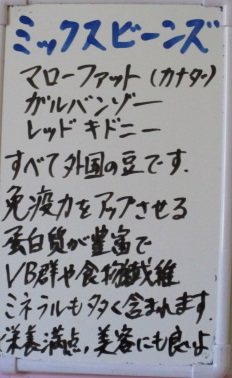 ミックスビーンズ
マローファット(カナダ)
ガルバンゾー
レッドキドニー
すべて外国の豆です.
免疫力をアップさせる
蛋白質が豊富で
VB群や食物繊維
ミネラルも多く含まれます.
栄養満点,美容にも良いよ